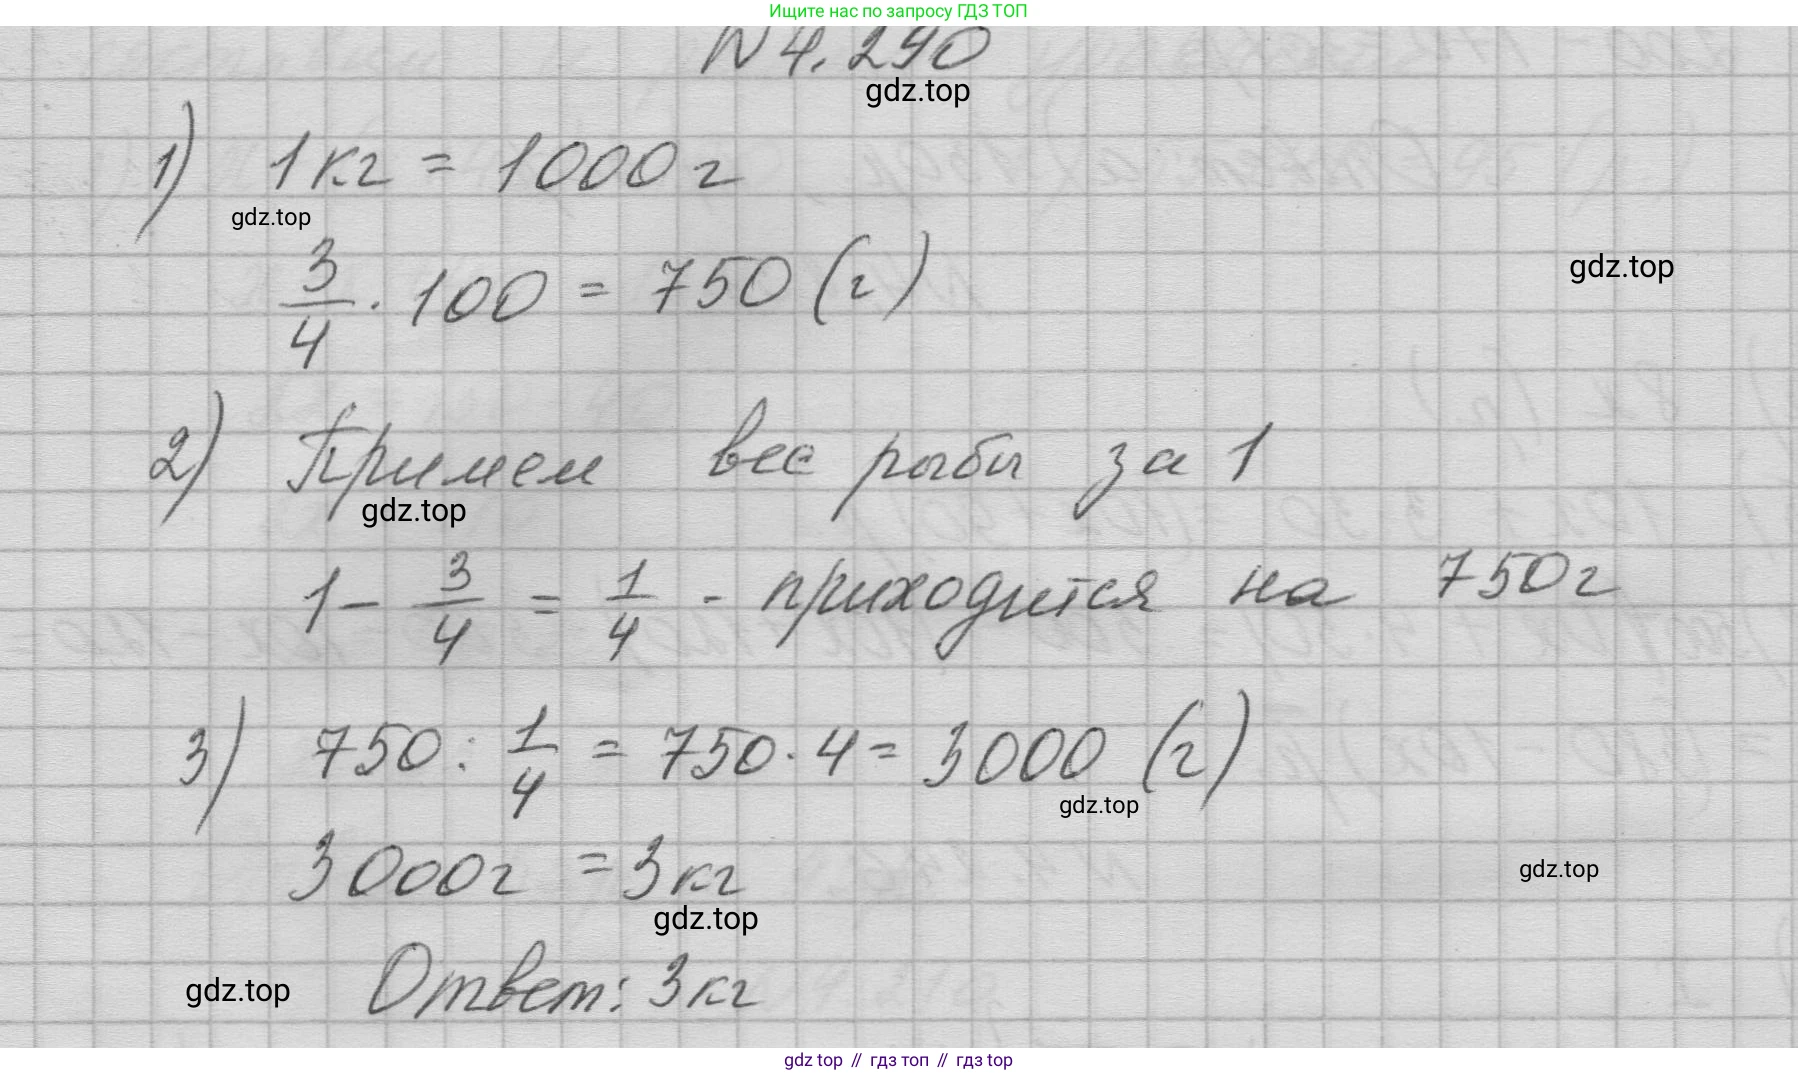 Ищите нас по запросу ГДЗ ТОП
N 4.290
gdz.top
1) 1кг = 1000г
gdz.top
3/4 · 100 = 750 (г)
gdz.top
2) Примем вес рыбы за 1
gdz.top
1 - 3/4 = 1/4 - приходится на 750г
3) 750 : 1/4 = 750 · 4 = 3000 (г)
gdz.top
3000г = 3кг
gdz.top
gdz.top
Ответ: 3кг
gdz.top
gdz top // гдз топ // гдз top